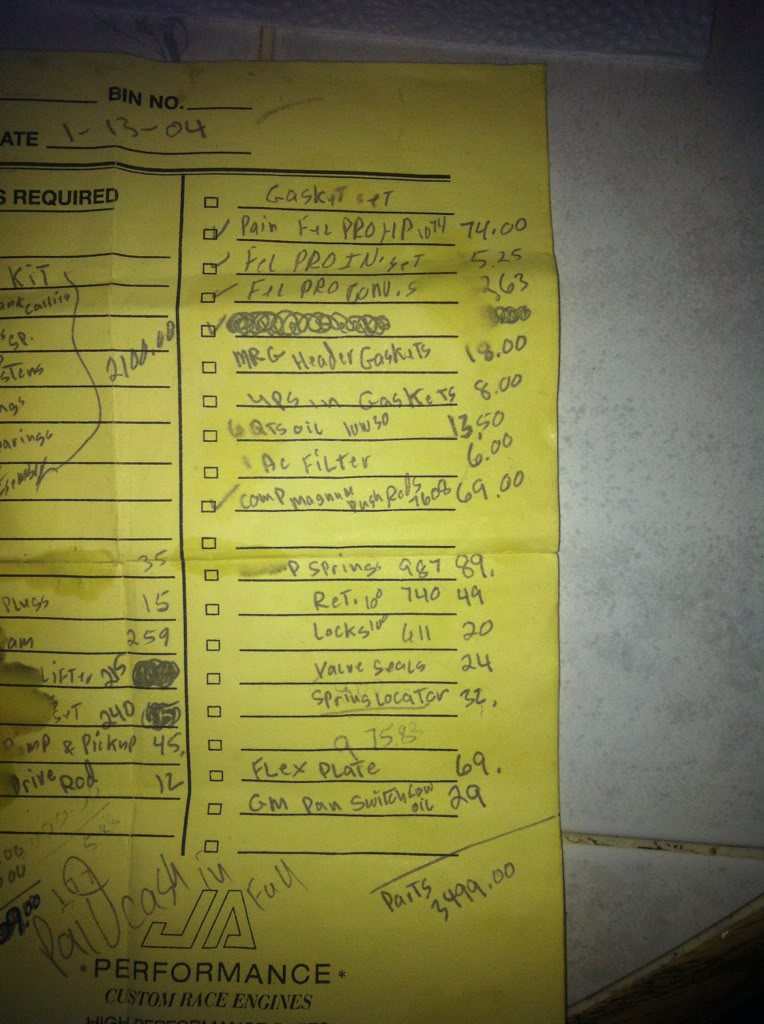 BIN NO.
ATE 1-13-04
S REQUIRED
KIT
2100.00
35
Plugs 15
am 259
LIFTER 215
ET 240
MP & Pickup 45.
Drive Rod 12
Gasket set
Pain Fel PRO HP 1074 74.00
Fel PRO IN. set 5.25
Fel PRO CONV. S 2,63
MRG Header Gaskets 18.00
in Gaskets 8.00
6 QTS oil 10W30 13,50
1 AC Filter 6.00
COMP magnum Push Rods 7608 69.00
P Springs 987 89.
Ret. 10° 740 49
Locks 10° 611 20
Valve Seals 24
Spring Locator 32.
Flex Plate 69.
GM Pan Switch Low oil 29
Parts 3499.00
Paid cash in Full
JA
*PERFORMANCE*
CUSTOM RACE ENGINES